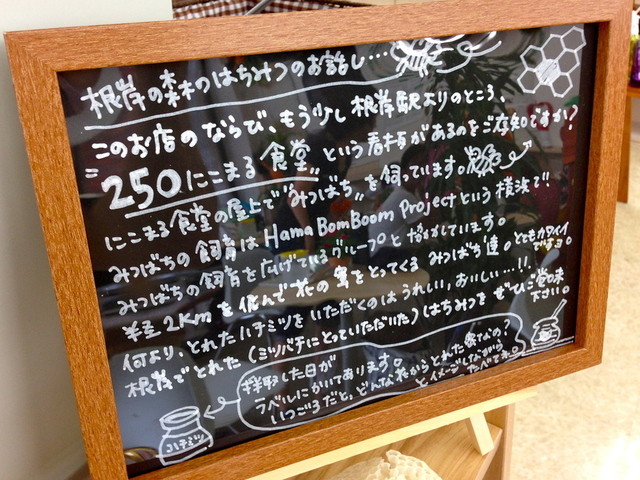 根岸の森のはちみつのお話し…
このお店のならび、もう少し根岸駅よりのところ、
"250にこまる食堂"という看板があるのをご存知ですか?
にこまる食堂の屋上で"みつばち"を飼っています。
みつばちの飼育はHama BomBoom Projectという横浜で!
みつばちの飼育を広げているグループと協力しています。
半径2Kmを飛んで花の蜜をとってくるみつばち達。とてもカワイイですョ。
何より、とれたハチミツをいただくのはうれしい、おいしい…!!
根岸でとれた(ミツバチにとっていただいた)はちみつをぜひご賞味下さい。
採取した日が
ラベルにかいてあります。
いつごろだと、どんな花からとれた蜜なの?
とイメージしながら
たべてネ。
ハチミツ